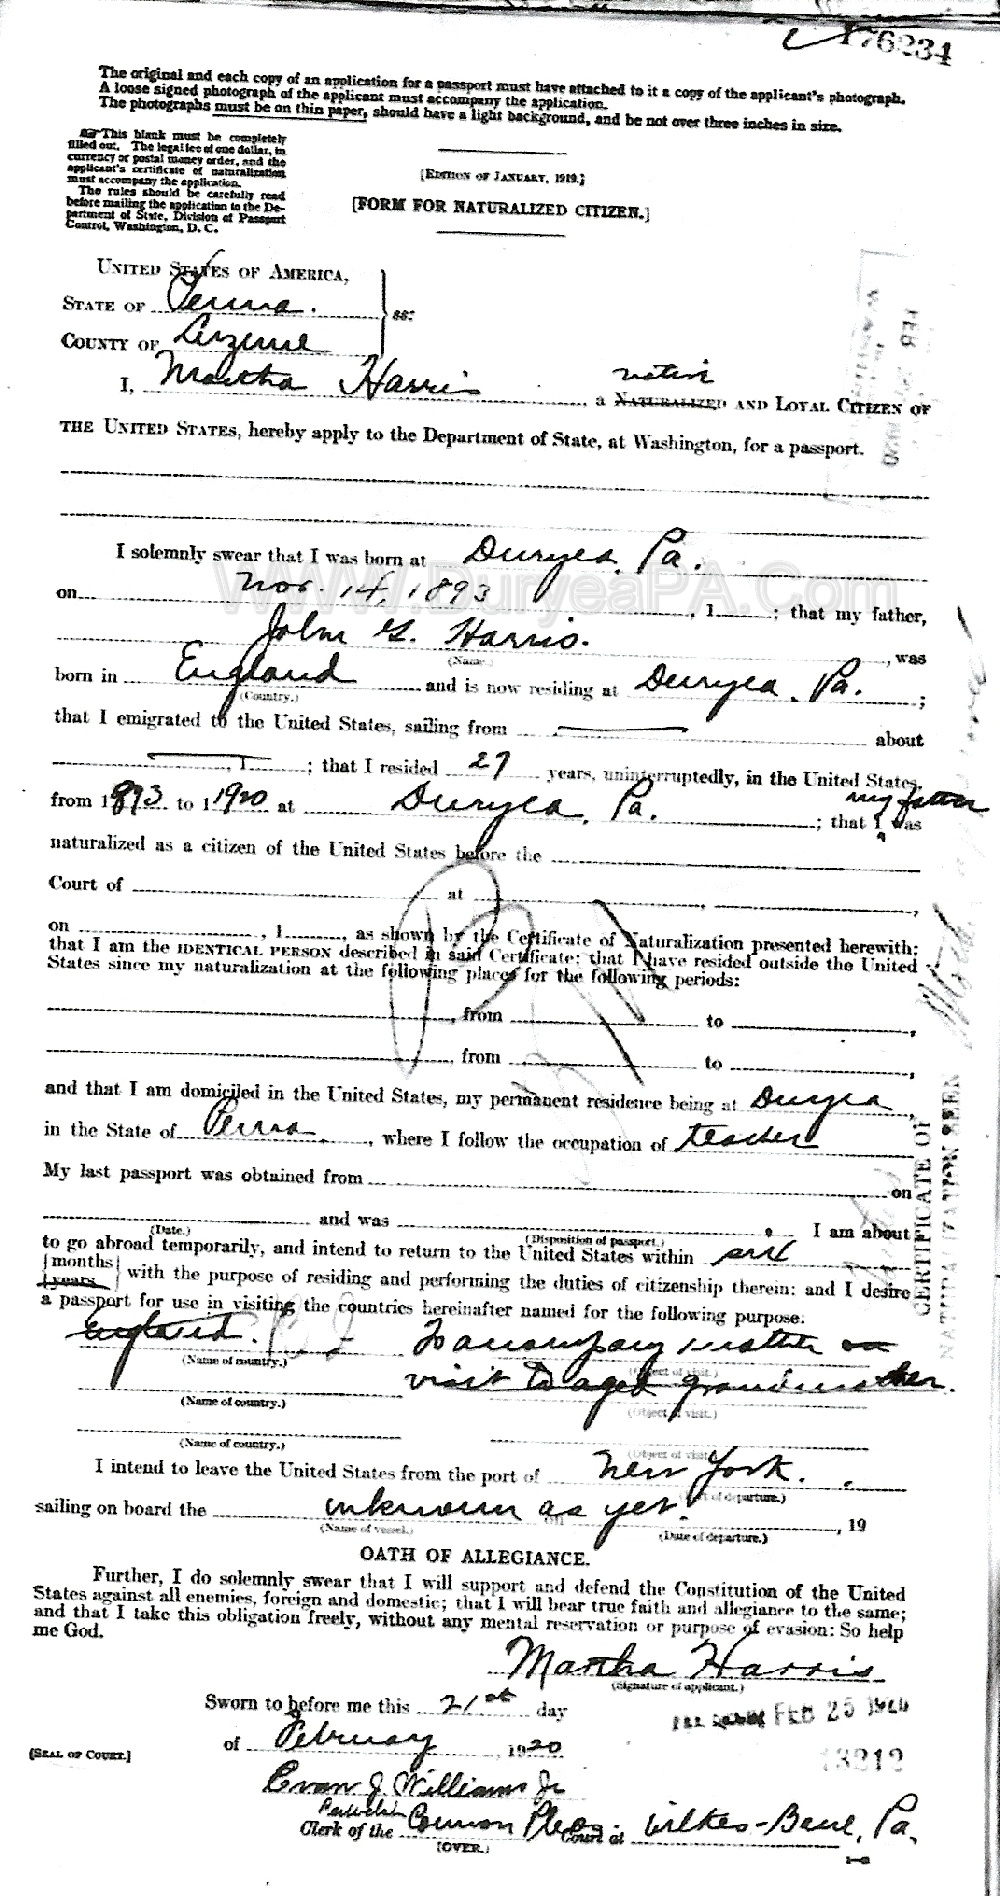 176234
The original and each copy of an application for a passport must have attached to it a copy of the applicant's photograph.
A loose signed photograph of the applicant must accompany the application.
The photographs must be on thin paper, should have a light background, and be not over three inches in size.
This blank must be completely
filled out. The legal fee of one dollar, in
currency or postal money order, and the
applicant's certificate of naturalization
must accompany the application.
The rules should be carefully read
before mailing the application to the De-
partment of State, Division of Passport
Control, Washington, D. C.
[EDITION OF JANUARY, 1919.]
[FORM FOR NATURALIZED CITIZEN.]
UNITED STATES OF AMERICA,
STATE OF Penna.
ss:
COUNTY OF Luzerne
I, Martha Harris, a NATURALIZED native AND LOYAL CITIZEN OF
THE UNITED STATES, hereby apply to the Department of State, at Washington, for a passport.
I solemnly swear that I was born at Duryea, Pa.
on Nov 14, 1893, 1 ; that my father,
John G. Harris. , was
(Name.)
born in England and is now residing at Duryea, Pa. ;
(Country.)
that I emigrated to the United States, sailing from about
, 1 ; that I resided 27 years, uninterruptedly, in the United States,
from 1893 to 1 1920 at Duryea, Pa. ; that I my father was
naturalized as a citizen of the United States before the
Court of at , ,
on , 1 , as shown by the Certificate of Naturalization presented herewith;
that I am the IDENTICAL PERSON described in said Certificate; that I have resided outside the United
States since my naturalization at the following places for the following periods:
, from to ,
, from to ,
and that I am domiciled in the United States, my permanent residence being at Duryea,
in the State of Penna. , where I follow the occupation of teacher
My last passport was obtained from on
and was . I am about
(Date.) (Disposition of passport.)
to go abroad temporarily, and intend to return to the United States within six
{months
{years} with the purpose of residing and performing the duties of citizenship therein; and I desire
a passport for use in visiting the countries hereinafter named for the following purpose:
England. To accompany mother on
(Name of country.) (Object of visit.)
visit to aged grandmother.
(Name of country.) (Object of visit.)
(Name of country.) (Object of visit.)
I intend to leave the United States from the port of New York.
(Port of departure.)
sailing on board the unknown as yet. on , 19
(Name of vessel.) (Date of departure.)
OATH OF ALLEGIANCE.
Further, I do solemnly swear that I will support and defend the Constitution of the United
States against all enemies, foreign and domestic; that I will bear true faith and allegiance to the same;
and that I take this obligation freely, without any mental reservation or purpose of evasion: So help
me God.
Martha Harris
(Signature of applicant.)
Sworn to before me this 21st day
FEB 25 1920
of February, 1920
[SEAL OF COURT.]
13212
Evan J. Williams Jr
Clerk of the Common Pleas Court at Wilkes-Barre, Pa.
(OVER.)
CERTIFICATE OF
NATURALIZATION SEEN
WWW.DuryeaPA.Com